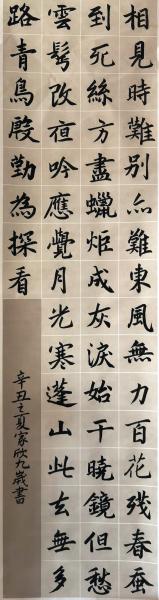 相見時難别亦難東風無力百花残春蚕
到死絲方盡蠟炬成灰淚始干曉鏡但愁
雲鬢改夜吟應覺月光寒蓬山此去無多
路青鳥殷勤為探看
辛丑之夏家欣九歲書